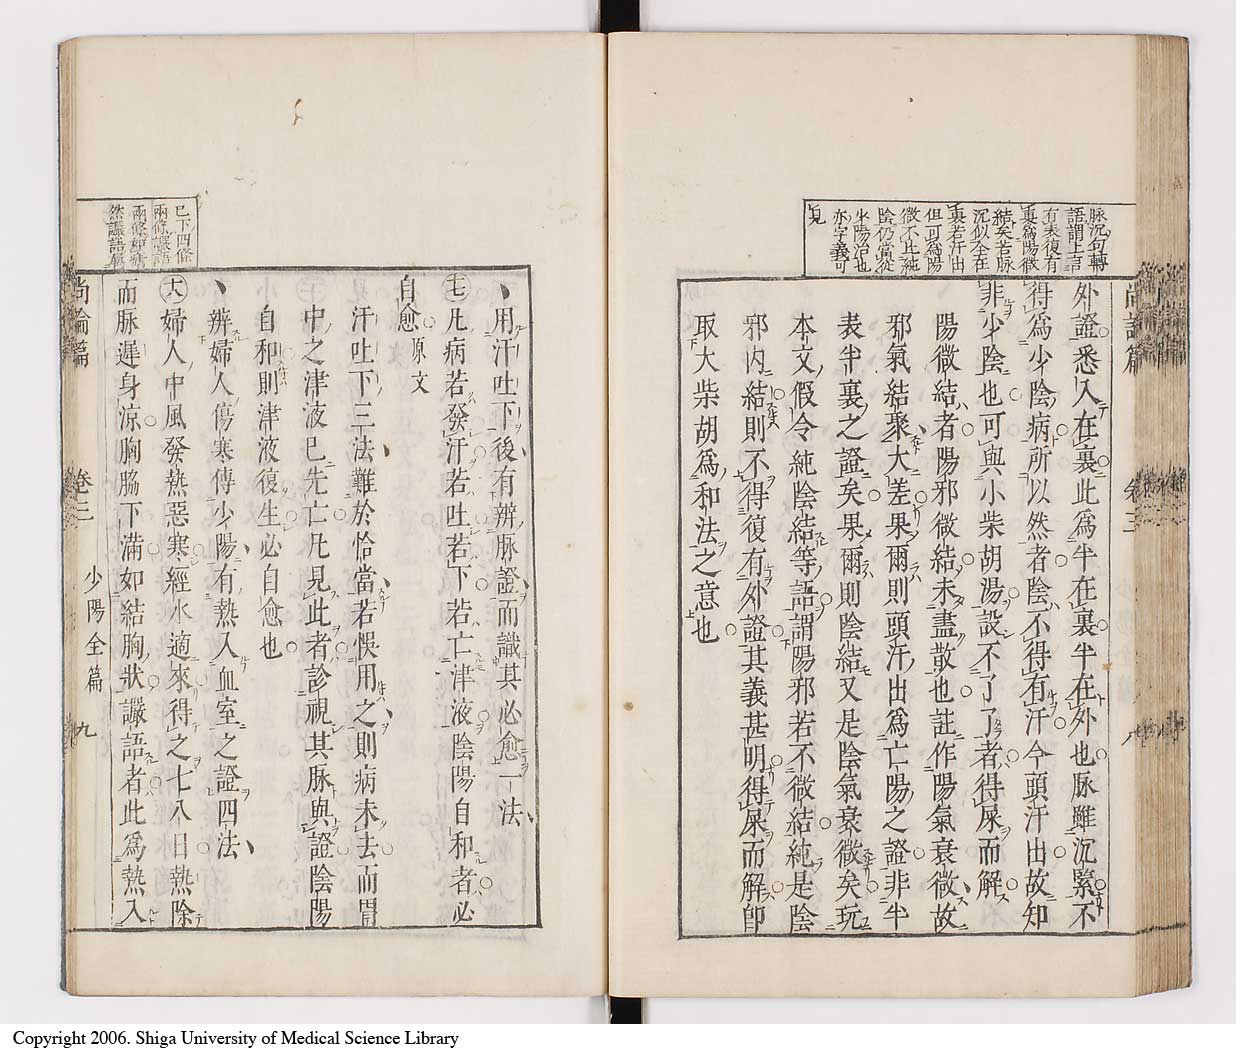 脉沉句轉
語謂上言
有表復有
裏為陽微
結矣若脉
沉似全在
裏若汗出
但可為陽
微不比純
陰仍當從
少陽治也
亦字義可
見
尚論篇 卷三 八
外證悉入在裏此為半在裏半在外也脉雖沉緊不
得為少陰病所以然者陰不得有汗今頭汗出故知
非少陰也可與小柴胡湯設不了了者得屎而解
陽微結者陽邪微結未盡散也註作陽氣衰微故
邪氣結聚大差果爾則頭汗出為亡陽之證非半
表半裏之證矣果爾則陰結又是陰氣衰微矣玩
本文假令純陰結等語謂陽邪若不微結純是陰
邪内結則不得復有外證其義甚明得屎而解卽
取大柴胡為和法之意也
已下四條
兩條讝語
兩條如瘧
然讝語屬
用汗吐下後有辨脉證而識其必愈一法
十七凡病若發汗若吐若下若亡津液陰陽自和者必
自愈 原文
汗吐下三法難於恰當若悞用之則病未去而胃
中之津液已先亡凡見此者診視其脉與證陰陽
自和則津液復生必自愈也
辨婦人傷寒傳少陽有熱入血室之證四法
十八婦人中風發熱惡寒經水適來得之七八日熱除
而脉遲身涼胸脇下滿如結胸狀讝語者此為熱入
尚論篇 卷三 少陽全篇 九
Copyright 2006. Shiga University of Medical Science Library